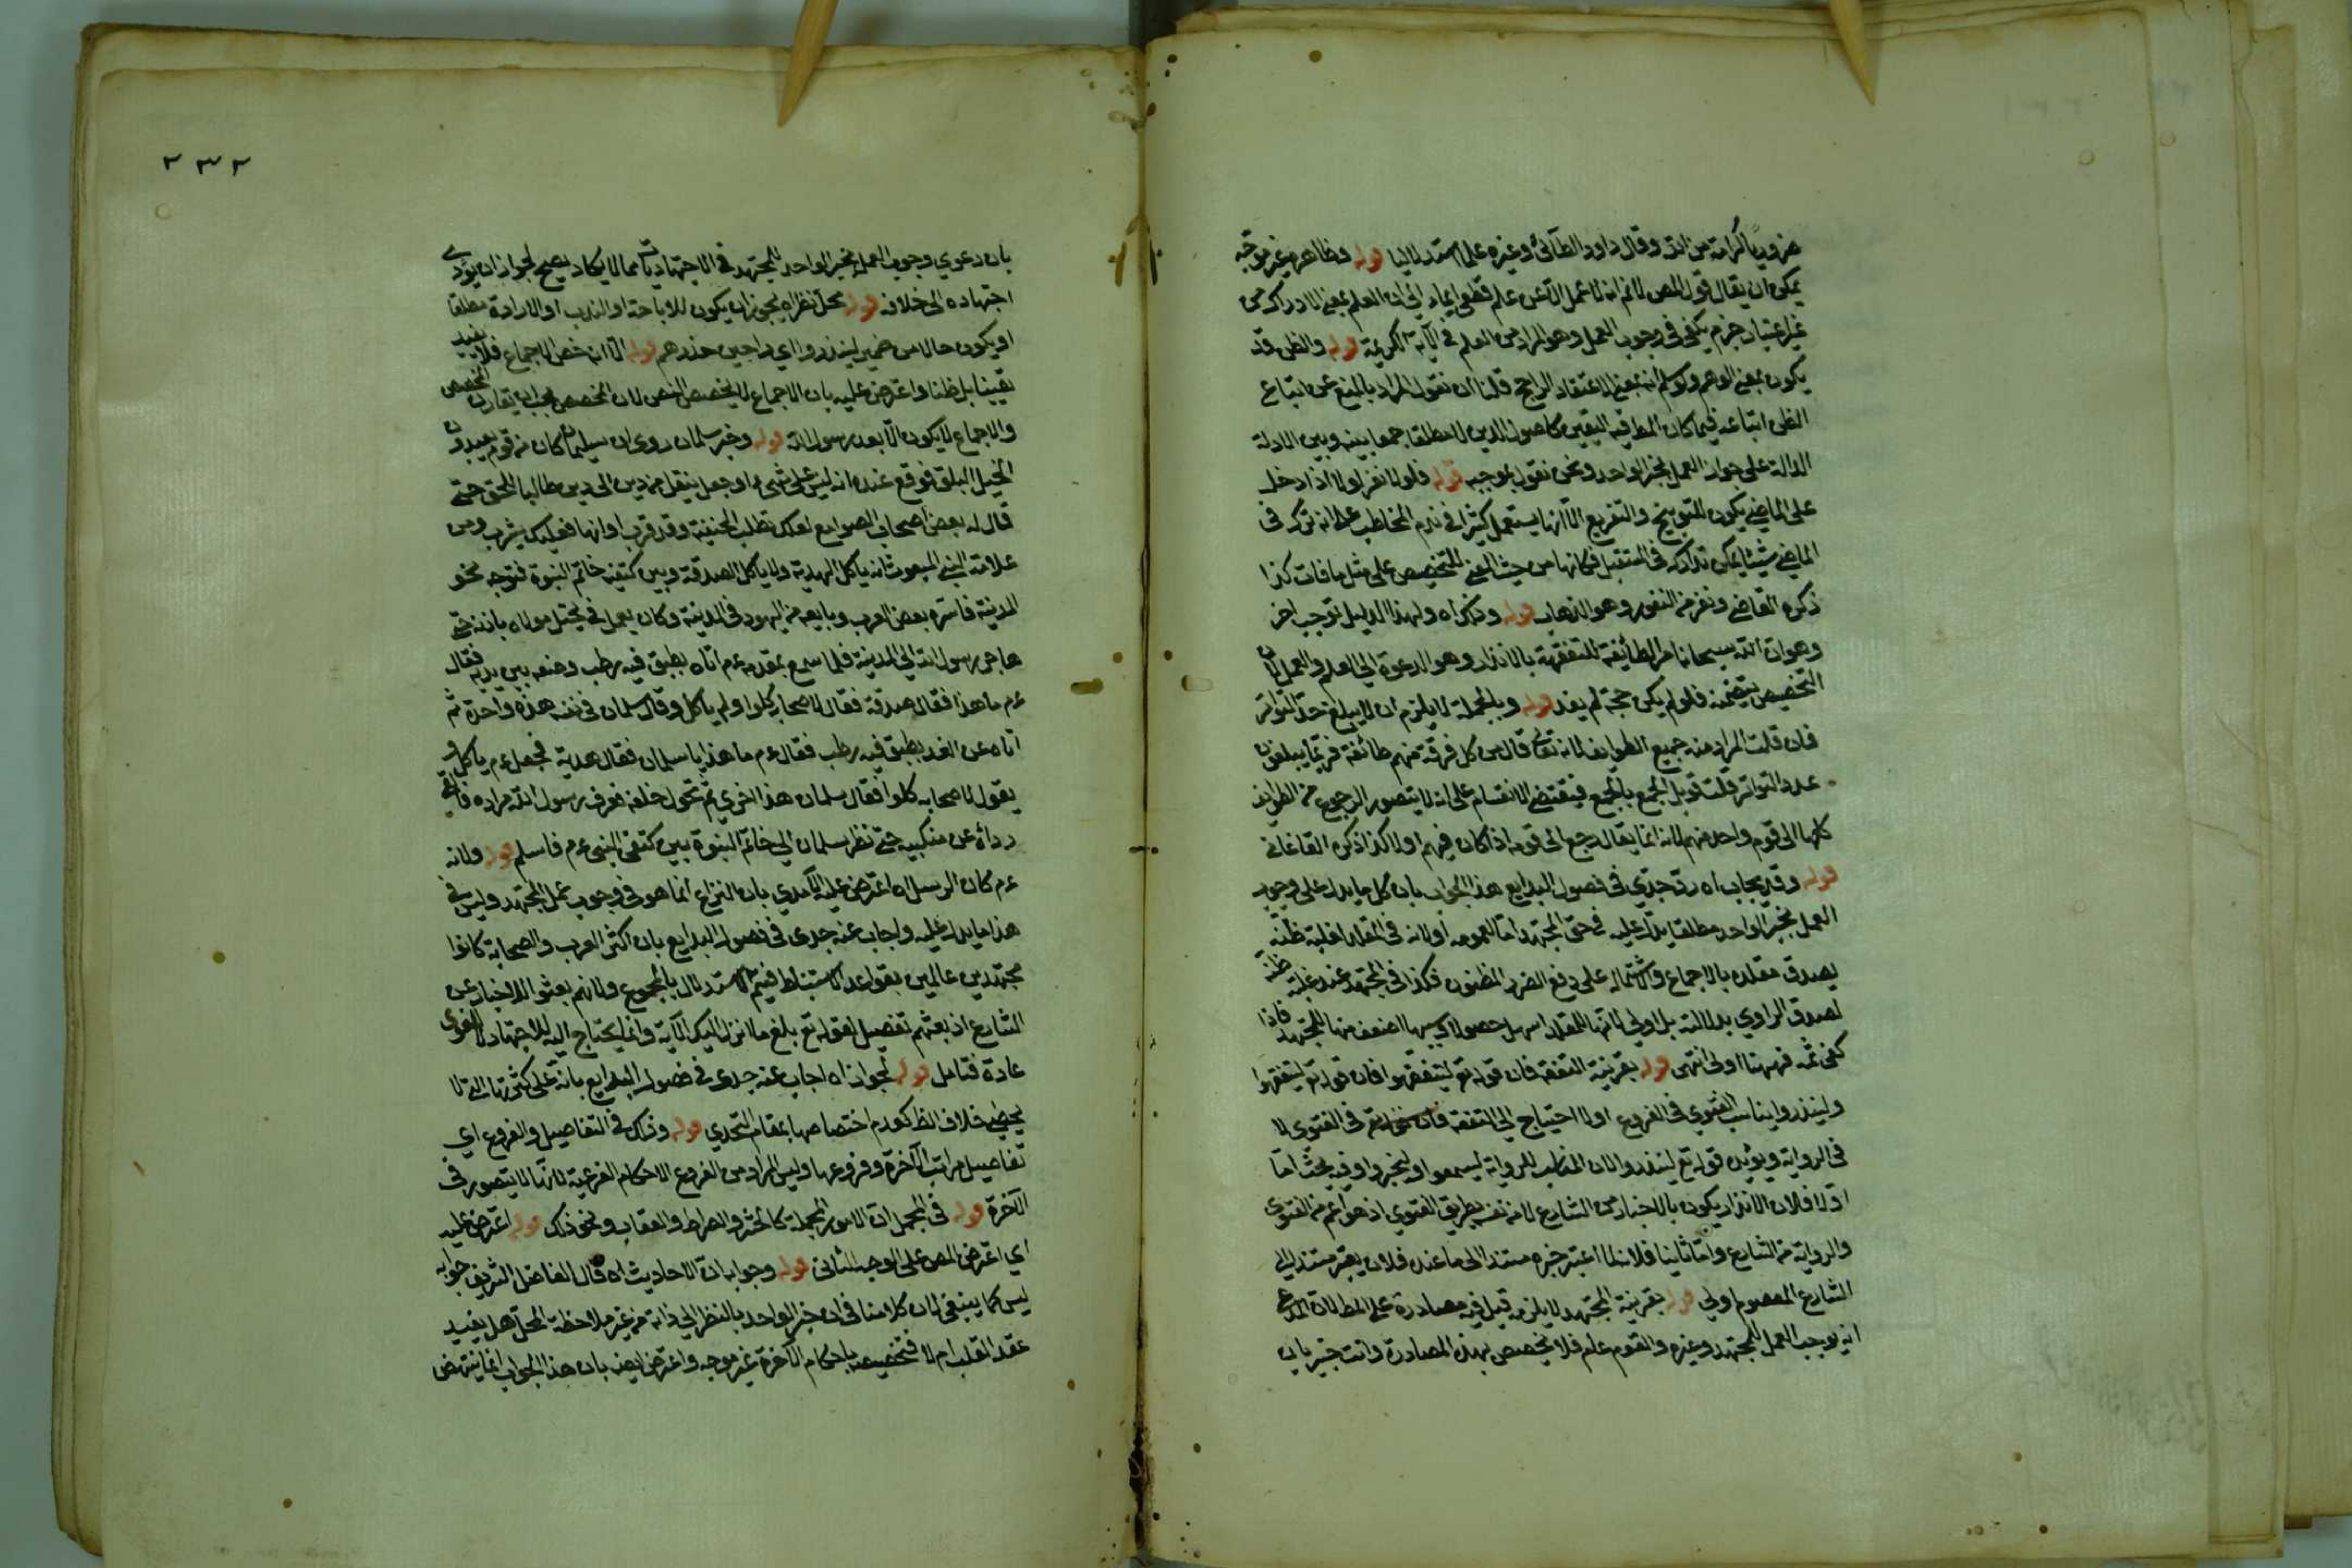 ضروريا كرامة من الله وقال داود الطائي وغيره علما استدلاليا قوله وظاهره غير موجه
يمكن ان يقال قول المص لانه لا عمل الا عن علم قطعي ايماء الى ان العلم بمعنى الادراك من
غير اعتبار جزم يكفي في وجوب العمل وهو المراد من العلم في الآية الكريمة قوله والظن قد
يكون بمعنى الوهم ولو سلم انه بمعنى الاعتقاد الراجح قلنا ان نقول المراد بالمنع عن اتباع
الظن اتباعه فيما كان المط فيه اليقين كاصول الدين لا مطلقا جمعا بينه وبين الادلة
الدالة على جواز العمل بخبر الواحد ونحن نقول بموجبه قوله فلولا نفر لولا اذا دخل
على الماضي يكون للتوبيخ والتقريع الا انها يستعمل كثيرا في ذم المخاطب على انه ترك في
الماضي شيئا يمكن تداركه في المستقبل فكانها من حيث المعنى للتخصيص على مثل ما فات كذا
ذكره القاضي ونفر من النفور وهو الذهاب قوله وذكراه ولهذا الدليل توجيه اخر
وهو ان الله سبحانه امر الطائفة المتفقهة بالانذار وهو الدعوة الى العلم والعمل لان
التخصيص يتضمنه فلو لم يكن حجة لم يفد قوله وبالجملة لا يلزم ان لا يبلغ حد التواتر
فان قلت المراد منه جميع الطوايف لانه تعالى قال من كل فرقة منهم طائفة فربما يبلغون
عدد التواتر قلت قوبل الجمع بالجمع فيقتضي الانقسام على انه لا يتصور الرجوع من الطوايف
كلها الى قوم واحد منهم لانه انما يقال رجع الى قومه اذا كان فيهم اولا كذا ذكره القاغاني
قوله وقد يجاب اه رد جدي في فصول البدايع هذا الجواب بان كل ما يدل على وجوب
العمل بخبر الواحد مطلقا يدل عليه في حق المجتهد اما لعمومه او لانه في المقلد لغلبة ظنه
بصدق مقلده بالاجماع واشتماله على دفع الضرر المظنون فكذا في المجتهد عند غلبة ظنه
لصدق الراوي بدلالته بل اولى لانها للمقلد اسهل حصولا اذ سببها اضعف منها للمجتهد فاذا
كفى ثمه فههنا اولى انتهى قوله بقرينة التفقه فان قوله تع ليتفقهوا فان قوله تع ليتفقهوا
ولينذروا يناسب الفتوى في الفروع اولا احتياج الى التفقه فان قوله تع في الفتوى لا
في الرواية ويؤيده قوله تع لينذروا لان المناسب للرواية ليسمعوا وليخبروا وفيه بحث اما
اولا فلان الانذار يكون بالاخبار من الشارع لا من نفسه بطريق الفتوى اذ هو اعم من الفتوى
والرواية من الشارع واما ثانيا فلانه لما اعتبر خبره مستندا الى ما عنده فلان يعتبر مستندا الى
الشارع المعصوم اولى قوله بقرينة المجتهد لا يلزمه قيل فيه مصادرة على المط لان المدعي
انه يوجب العمل للمجتهد وغيره والقوم علم فلا تخصيص بهذه المصادرة وانت خبير بان
٢٣٢
بان دعوي وجوب العمل بخبر الواحد للمجتهد في الاجتهاديات مما لا يكاد يصح لجواز ان يؤدي
اجتهاده الى خلافه قوله محل نظر اه يجوز ان يكون للاباحة او الندب او الارادة مطلقا
او يكون حالا من ضمير لينذروا اي راجين حذرهم قوله الا انه خص الاجماع فلا يفيد
يقينا بل ظنا واعترض عليه بان الاجماع لا يخصص النص لان المخصص يجب ان يقارن المخصص
والاجماع لا يكون الا بعد رسول الله قوله وخبر سلمان روى ان سليمان كان من قوم يعبدون
الخيل البلق فوقع عنده انه ليس على شئ وجعل ينتقل من دين الى دين طالبا للحق حتى
قال له بعض اصحاب الصوامع لعلك تطلب الحنيفية وقد قرب اوانها فعليك بيثرب ومن
علامة النبي المبعوث انه ياكل الهدية ولا ياكل الصدقة وبين كتفيه خاتم النبوة فتوجه نحو
المدينة فاسره بعض العرب وبايعه من اليهود في المدينة وكان يعمل في نخيل مولاه باذنه حتى
هاجر رسول الله الى المدينة فلما سمع بمقدمه ءم اتاه بطبق فيه رطب وضعه بين يديه فقال
ءم ما هذا فقال صدقة فقال لاصحابه كلوا ولم ياكل وقال سلمان في نفسه هذه واحدة ثم
اتاه من الغد بطبق فيه رطب فقال ءم ما هذا يا سلمان فقال هدية فجعل ءم ياكل و
يقول لاصحابه كلوا فقال سلمان هذا اخرى ثم تحول خلفه فعرف رسول الله مراده فالقى
رداءه عن منكبيه حتى نظر سلمان الى خاتم النبوة بين كتفي النبي ءم فاسلم قوله ولانه
ءم كان الرسل اه اعترض عليه الآمدي بان النزاع انما هو في وجوب عمل المجتهد وليس في
هذا ما يدل عليه واجاب عنه جدي في فصول البدايع بان اكثر العرب والصحابة كانوا
مجتهدين عالمين بقواعد الاستنباط فيتم الاستدلال بالمجموع ولانهم بعثوا للاخبار عن
الشارع اذ بعثهم تفصيل لقوله تع بلغ ما انزل اليك الآية وانما يحتاج اليه للاجتهاد لا الفتوى
عادة فتامل قوله لجواز اه اجاب عنه جدي في فصول البدايع بانه على كثرتها التي لا
يحصى خلاف الظ كعدم اختصاصها بمقام التحدي قوله وذلك في التفاصيل والفروع اي
تفاصيل مراتب الآخرة وفروعها وليس المراد من الفروع الاحكام الفرعية لانها لا يتصور في
الآخرة قوله في المجمل اه الامور المجملة كالحشر والصراط والعقاب ونحو ذلك قوله اعترض عليه
اي اعترض المص على الوجه الثاني قوله وجوابه ان الاحاديث اه قال الفاضل الشريف جوابه
ليس كما ينبغي لان كلامنا في ان خبر الواحد بالنظر الى ذاته من غير ملاحظة المحل هل يفيد
عقد القلب ام لا فتخصيصه باحكام الآخرة غير موجه واعترض ايضه بان هذا الجواب انما ينتهض